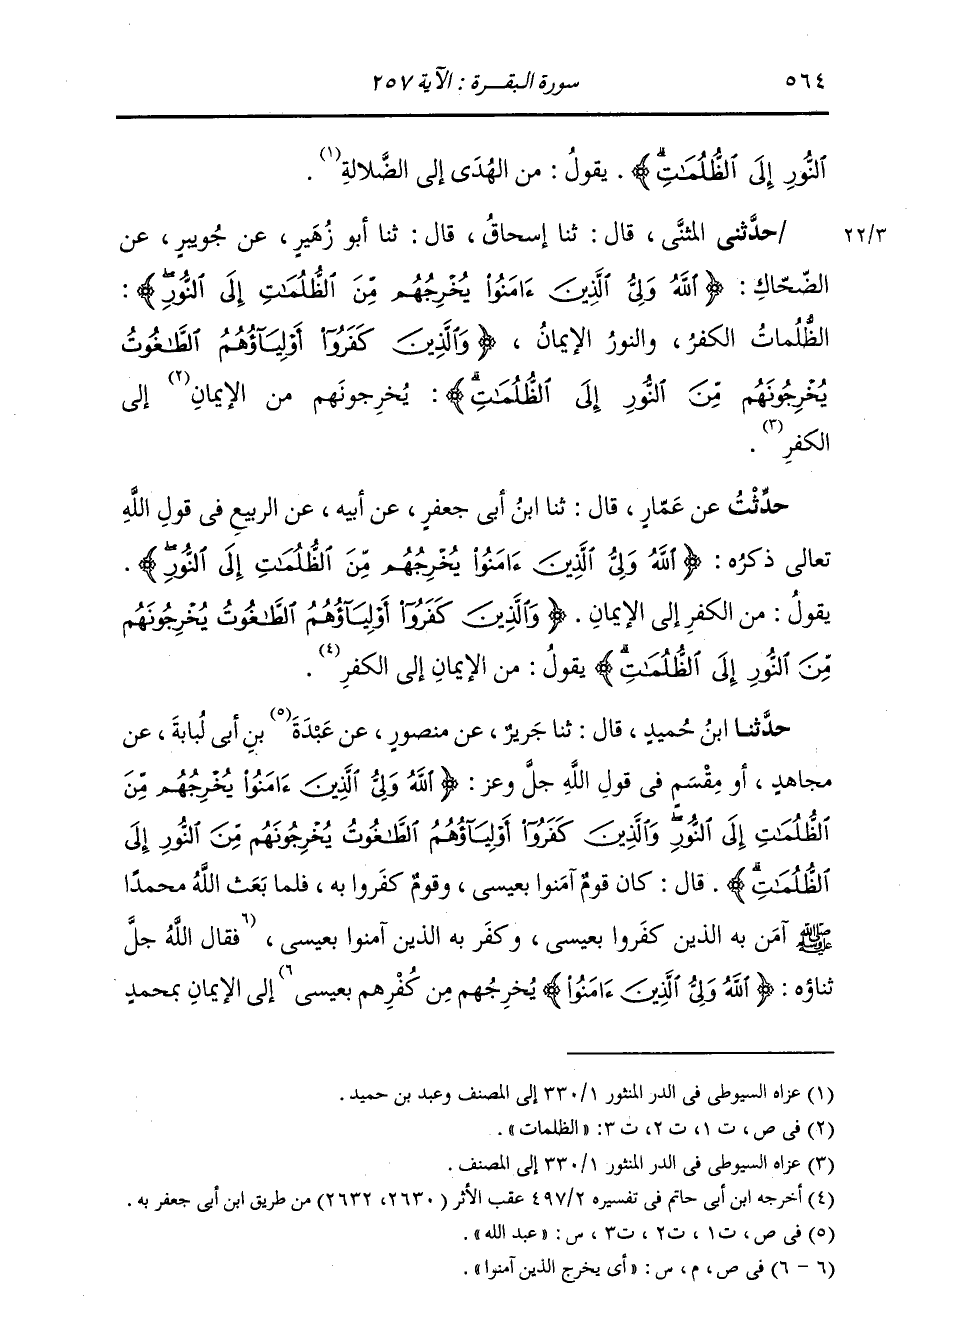 ٥٦٤ سورة البقــرة : الآية ٢٥٧
ٱلنُّورِ إِلَى ٱلظُّلُمَـٰتِۗ ﴾ . يقولُ : من الهُدَى إلى الضَّلالةِ(١) .
٢٢/٣ /حدَّثنى المثنَّى ، قال : ثنا إسحاقُ ، قال : ثنا أبو زُهَيرٍ ، عن جُويبرٍ ، عن
الضّحّاكِ : ﴿ ٱللَّهُ وَلِىُّ ٱلَّذِينَ ءَامَنُوا۟ يُخْرِجُهُم مِّنَ ٱلظُّلُمَـٰتِ إِلَى ٱلنُّورِۖ ﴾ :
الظُّلُماتُ الكفرُ ، والنورُ الإيمانُ ، ﴿ وَٱلَّذِينَ كَفَرُوٓا۟ أَوْلِيَآؤُهُمُ ٱلطَّـٰغُوتُ
يُخْرِجُونَهُم مِّنَ ٱلنُّورِ إِلَى ٱلظُّلُمَـٰتِۗ ﴾ : يُخرِجونَهم من الإيمانِ(٢) إلى
الكفرِ(٣) .
حدِّثْتُ عن عَمّارٍ ، قال : ثنا ابنُ أبى جعفرٍ ، عن أبيه ، عن الربيعِ فى قولِ اللَّهِ
تعالى ذكرُه : ﴿ ٱللَّهُ وَلِىُّ ٱلَّذِينَ ءَامَنُوا۟ يُخْرِجُهُم مِّنَ ٱلظُّلُمَـٰتِ إِلَى ٱلنُّورِۖ ﴾ .
يقولُ : من الكفرِ إلى الإيمانِ . ﴿ وَٱلَّذِينَ كَفَرُوٓا۟ أَوْلِيَآؤُهُمُ ٱلطَّـٰغُوتُ يُخْرِجُونَهُم
مِّنَ ٱلنُّورِ إِلَى ٱلظُّلُمَـٰتِۗ ﴾ يقولُ : من الإيمانِ إلى الكفرِ(٤) .
حدَّثنـا ابنُ حُميدٍ ، قال : ثنا جَريرٌ ، عن منصورٍ ، عن عَبْدَةَ(٥) بنِ أبى لُبابةَ ، عن
مجاهدٍ ، أو مِقْسَمٍ فى قولِ اللَّهِ جلَّ وعز : ﴿ ٱللَّهُ وَلِىُّ ٱلَّذِينَ ءَامَنُوا۟ يُخْرِجُهُم مِّنَ
ٱلظُّلُمَـٰتِ إِلَى ٱلنُّورِۖ وَٱلَّذِينَ كَفَرُوٓا۟ أَوْلِيَآؤُهُمُ ٱلطَّـٰغُوتُ يُخْرِجُونَهُم مِّنَ ٱلنُّورِ إِلَى
ٱلظُّلُمَـٰتِۗ ﴾ . قال : كان قومٌ آمَنوا بعيسى ، وقومٌ كفَروا به ، فلما بَعَث اللَّهُ محمدًا
ﷺ آمَن به الذين كفَروا بعيسى ، وكفَر به الذين آمنوا بعيسى ، (٦فقال اللَّهُ جلَّ
ثناؤه : ﴿ ٱللَّهُ وَلِىُّ ٱلَّذِينَ ءَامَنُوا۟ ﴾ يُخرِجُهم مِن كُفْرِهم بعيسى٦) إلى الإيمانِ بمحمدٍ
(١) عزاه السيوطى فى الدر المنثور ٣٣٠/١ إلى المصنف وعبد بن حميد .
(٢) فى ص ، ت ١، ت ٢، ت ٣: «الظلمات» .
(٣) عزاه السيوطى فى الدر المنثور ٣٣٠/١ إلى المصنف .
(٤) أخرجه ابن أبى حاتم فى تفسيره ٤٩٧/٢ عقب الأثر ( ٢٦٣٠، ٢٦٣٢) من طريق ابن أبى جعفر به .
(٥) فى ص ، ت١ ، ت٢ ، ت٣ ، س : «عبد الله» .
(٦ - ٦) فى ص ، م ، س : «أى يخرج الذين آمنوا» .